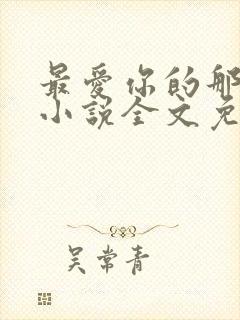 最爱你的那
小说全文免
吴常青